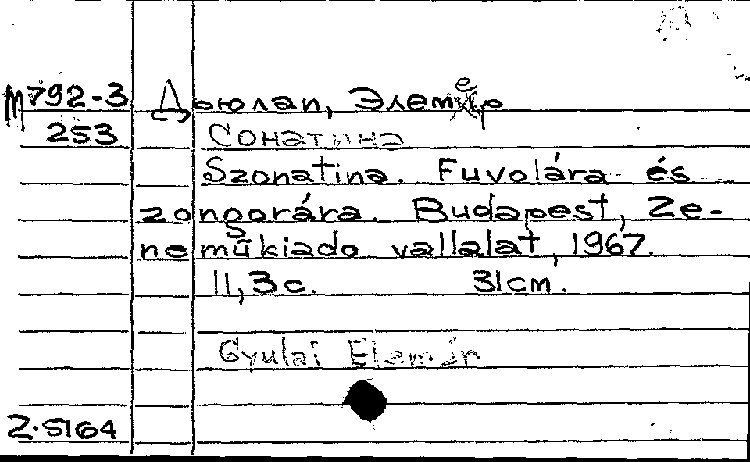 М792-3 Дьюлаи, Элемер
253 Сонатина
Szonatina. Fuvolára és
zongorára. Budapest, Ze-
neműkiado vallalat, 1967.
11, 3 с. 31 cm.
Gyulai Elemér
2.5164